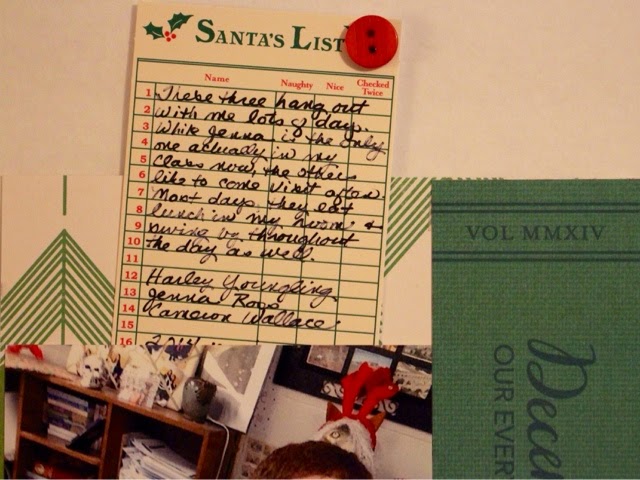 SANTA'S LIST
Name Naughty Nice Checked Twice
1 These three hang out
2 with me lots of days.
3 While Jenna is the only
4 one actually in my
5 class now, the others
6 like to come visit often.
7 Most days they eat
8 lunch in my room &
9 swing by throughout
10 the day as well.
11
12 Harley Youngling
13 Jenna Rogo
14 Cameron Wallace
15
16 2014
VOL MMXIV
Decem
OUR EVER